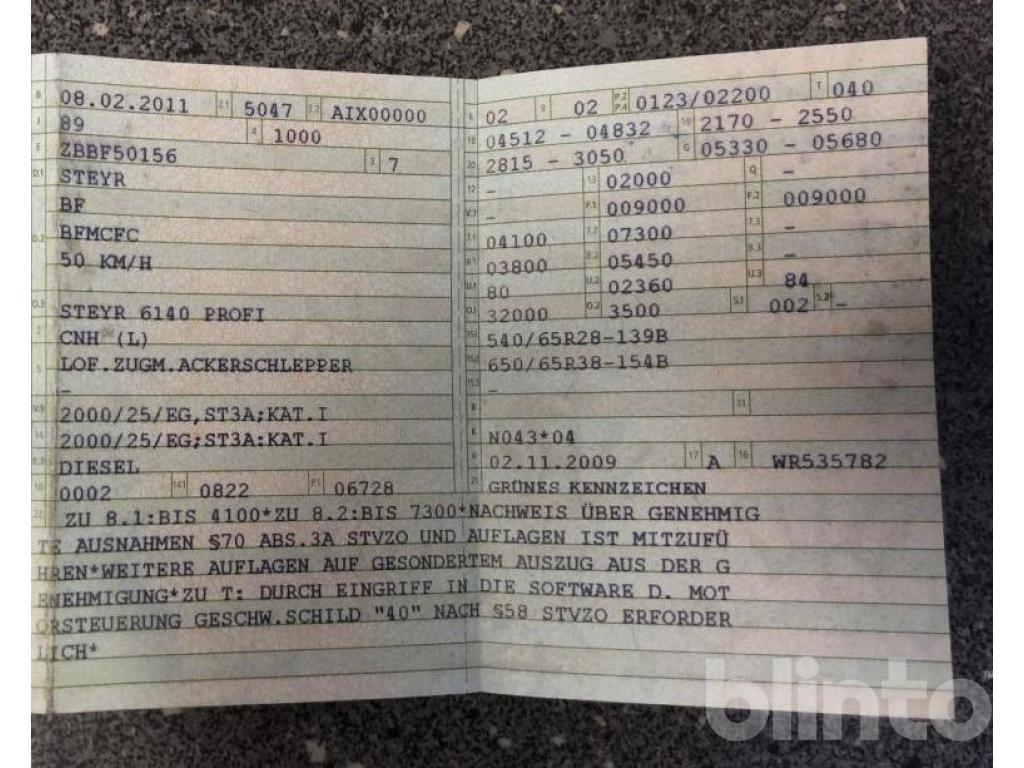 B 08.02.2011 2.1 5047 2.2 AIX00000
J 89 4 1000
E ZBBF50156 3 7
D.1 STEYR
BF
D.2 BFMCFC
50 KM/H
D.3 STEYR 6140 PROFI
2 CNH (L)
5 LOF.ZUGM.ACKERSCHLEPPER
-
V.9 2000/25/EG,ST3A;KAT.I
14 2000/25/EG;ST3A:KAT.I
P.3 DIESEL
10 0002 14.1 0822 P.1 06728
L 02 9 02 P.2 P.4 0123/02200 T 040
18 04512 - 04832 19 2170 - 2550
20 2815 - 3050 G 05330 - 05680
12 - 13 02000 Q -
V.7 - F.1 009000 F.2 009000
7.1 04100 7.2 07300 7.3 -
8.1 03800 8.2 05450 8.3 -
U.1 80 U.2 02360 U.3 84
O.1 32000 O.2 3500 S.1 002 S.2 -
15.1 540/65R28-139B
15.2 650/65R38-154B
15.3 -
R 11
K N043*04
6 02.11.2009 17 A 16 WR535782
21 GRÜNES KENNZEICHEN
22 ZU 8.1:BIS 4100*ZU 8.2:BIS 7300*NACHWEIS ÜBER GENEHMIG
TE AUSNAHMEN §70 ABS.3A STVZO UND AUFLAGEN IST MITZUFÜ
HREN*WEITERE AUFLAGEN AUF GESONDERTEM AUSZUG AUS DER G
ENEHMIGUNG*ZU T: DURCH EINGRIFF IN DIE SOFTWARE D. MOT
ORSTEUERUNG GESCHW.SCHILD "40" NACH §58 STVZO ERFORDER
LICH*
blinto